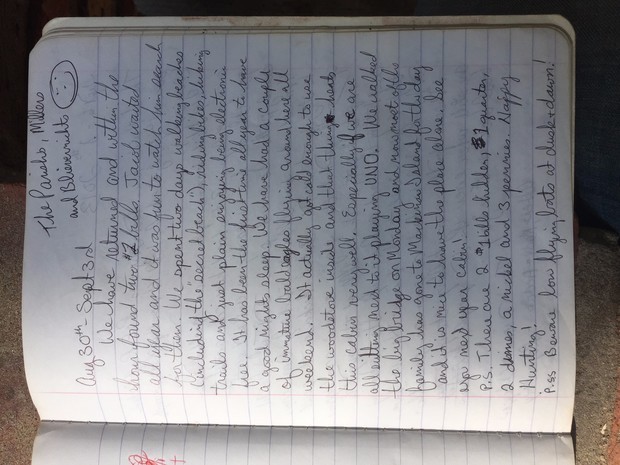 The Parishs, Millers
and Blievernichts
Aug 30th - Sept 3rd
We have returned and within the
hour found two $1 bills. Jacob waited
all year and it was fun to watch him search
for them. We spent two days walking beaches
(including the "secret beach"), riding bikes, hiking
trails and just plain enjoying being electronics
free. It has been the first time all year to have
a good nights sleep. We have had a couple
of immature bald eagles flying around here all
weekend. It actually got cold enough to use
the woodstove inside and that thing heats
this cabin very well. Especially if we are
all sitting next to it playing UNO. We walked
the big bridge on Monday and now most of the
family has gone to Mackinac Island for the day
and it is nice to have the place alone. See
you next year Cabin!
P.S. There are 2 $1 bills hidden, 1 quarter,
2 dimes, a nickel and 3 pennies. Happy
Hunting!
P.SS Beware low flying bats at dusk & dawn!